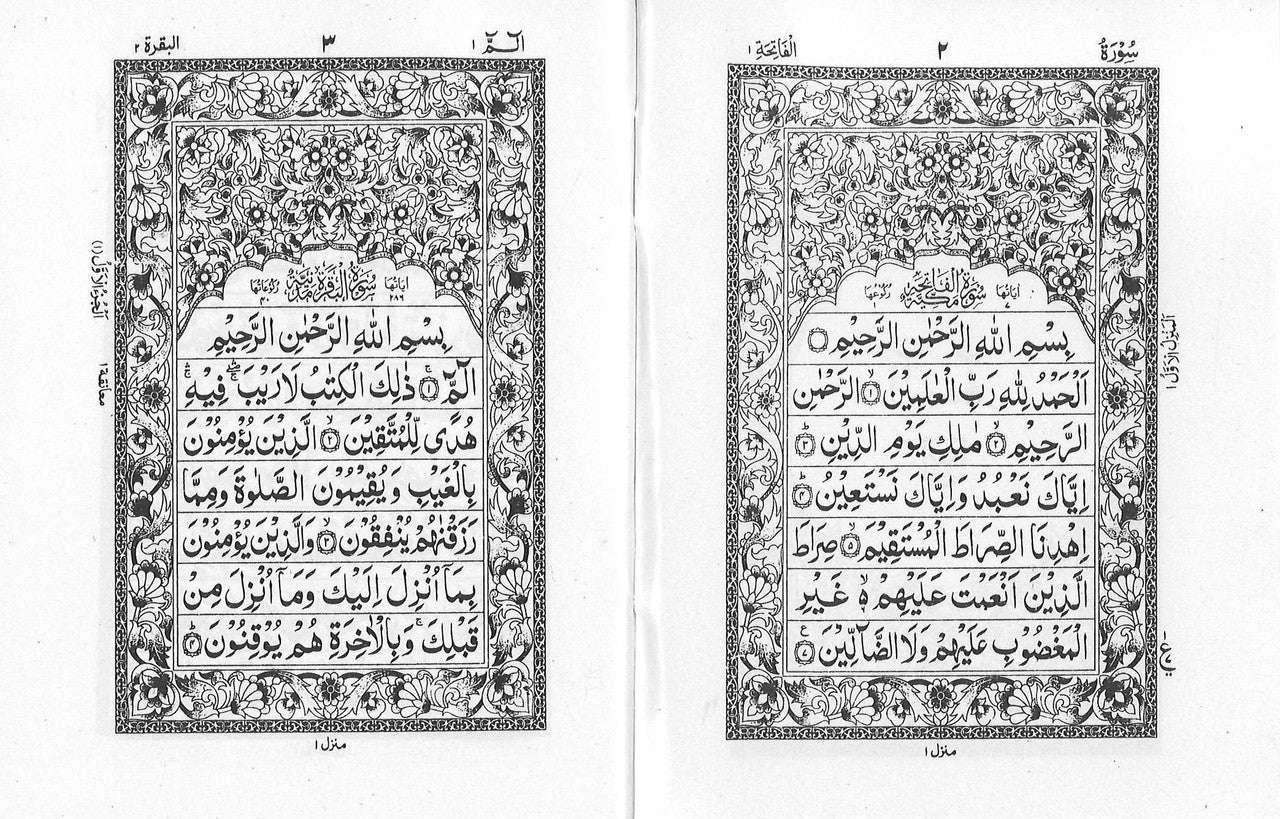 سُوْرَةُ ٢ الْفَاتِحَة ١
اٰيَاتُهَا ٧ سُوْرَةُ الْفَاتِحَةِ مَكِّيَّةٌ رُكُوْعُهَا
بِسْمِ اللّٰهِ الرَّحْمٰنِ الرَّحِيْمِ
اَلْحَمْدُ لِلّٰهِ رَبِّ الْعٰلَمِيْنَ ۙ﴿١﴾ الرَّحْمٰنِ
الرَّحِيْمِ ۙ﴿٢﴾ مٰلِكِ يَوْمِ الدِّيْنِ ؕ﴿٣﴾
اِيَّاكَ نَعْبُدُ وَاِيَّاكَ نَسْتَعِيْنُ ؕ﴿٤﴾
اِهْدِنَا الصِّرَاطَ الْمُسْتَقِيْمَ ۙ﴿٥﴾ صِرَاطَ
الَّذِيْنَ اَنْعَمْتَ عَلَيْهِمْ ۙ۬ غَيْرِ
الْمَغْضُوْبِ عَلَيْهِمْ وَلَا الضَّآلِّيْنَ ﴿٧﴾
اَلْمَنْزِلُ الْاَوَّلُ ١
منزل ١
الٓمّٓ ١ ٣ البقرة ٢
اٰيَاتُهَا ٢٨٦ سُوْرَةُ الْبَقَرَةِ مَدَنِيَّةٌ رُكُوْعَاتُهَا ٤٠
بِسْمِ اللّٰهِ الرَّحْمٰنِ الرَّحِيْمِ
الٓمّٓ ۚ﴿١﴾ ذٰلِكَ الْكِتٰبُ لَا رَيْبَ ۛۖۚ فِيْهِ ۛۚ
هُدًى لِّلْمُتَّقِيْنَ ۙ﴿٢﴾ الَّذِيْنَ يُؤْمِنُوْنَ
بِالْغَيْبِ وَيُقِيْمُوْنَ الصَّلٰوةَ وَمِمَّا
رَزَقْنٰهُمْ يُنْفِقُوْنَ ۙ﴿٣﴾ وَالَّذِيْنَ يُؤْمِنُوْنَ
بِمَآ اُنْزِلَ اِلَيْكَ وَمَآ اُنْزِلَ مِنْ
قَبْلِكَ ۚ وَبِالْاٰخِرَةِ هُمْ يُوْقِنُوْنَ ؕ﴿٤﴾
اَلْجُزْءُ الْاَوَّلُ (١)
معانقة ١
منزل ١